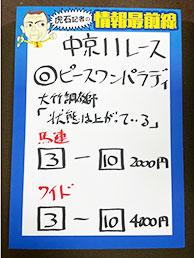 虎石記者の情報最前線
中京11レース
◎ピースワンパラディ
大竹調教師
「状態は上がっている」
馬連
3－10 2000円
ワイド
3－10 4200円